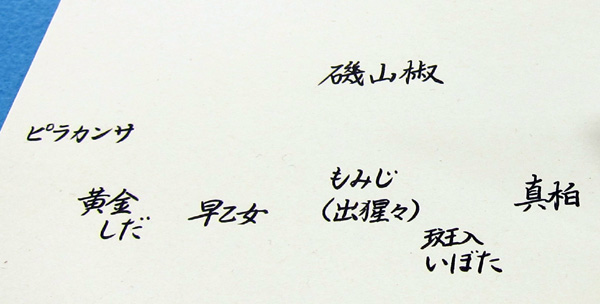 磯山椒
ピラカンサ
黄金
しだ
早乙女
もみじ
(出猩々)
斑入
いぼた
真柏